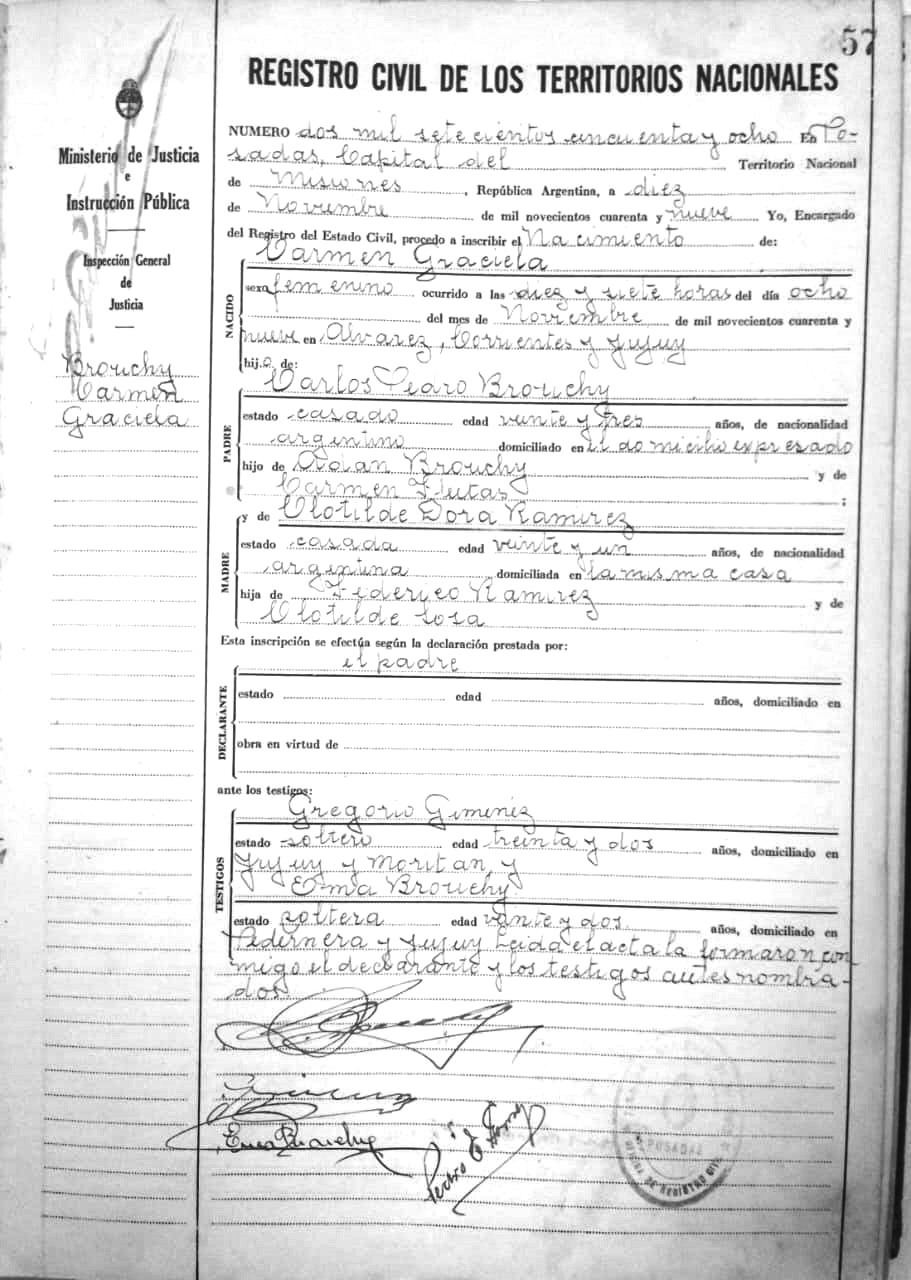 57
REGISTRO CIVIL DE LOS TERRITORIOS NACIONALES
Ministerio de Justicia
e
Instrucción Pública
Inspección General
de
Justicia
Brouchy
Carmen
Graciela
NUMERO dos mil setecientos cincuenta y ocho En Po-
sadas, Capital del Territorio Nacional
de Misiones, República Argentina, a diez
de Noviembre de mil novecientos cuarenta y nueve Yo, Encargado
del Registro del Estado Civil, procedo a inscribir el Nacimiento de:
Carmen Graciela
NACIDO
sexo femenino ocurrido a las diez y siete horas del día ocho
del mes de Noviembre de mil novecientos cuarenta y
nueve en Alvarez, Corrientes y Jujuy
hij.a de:
Carlos Pedro Brouchy
PADRE
estado casado edad veinte y tres años, de nacionalidad
argentino domiciliado en el domicilio expresado
hijo de Adan Brouchy y de
Carmen ;
y de Clotilde Dora Ramirez
MADRE
estado casada edad veinte y un años, de nacionalidad
argentina domiciliada en la misma casa
hija de Federico Ramirez y de
Clotilde Sosa
Esta inscripción se efectúa según la declaración prestada por:
el padre
DECLARANTE
estado edad años, domiciliado en
obra en virtud de
ante los testigos:
Gregorio Gimenez
TESTIGOS
estado soltero edad treinta y dos años, domiciliado en
Jujuy y Moritan, y
Ema Brouchy
estado soltera edad veinte y dos años, domiciliado en
Pedernera y Jujuy Leida el acta la firmaron con
migo el declarante y los testigos antes nombra-
dos.
Ema Brouchy
Pedro
POSADAS